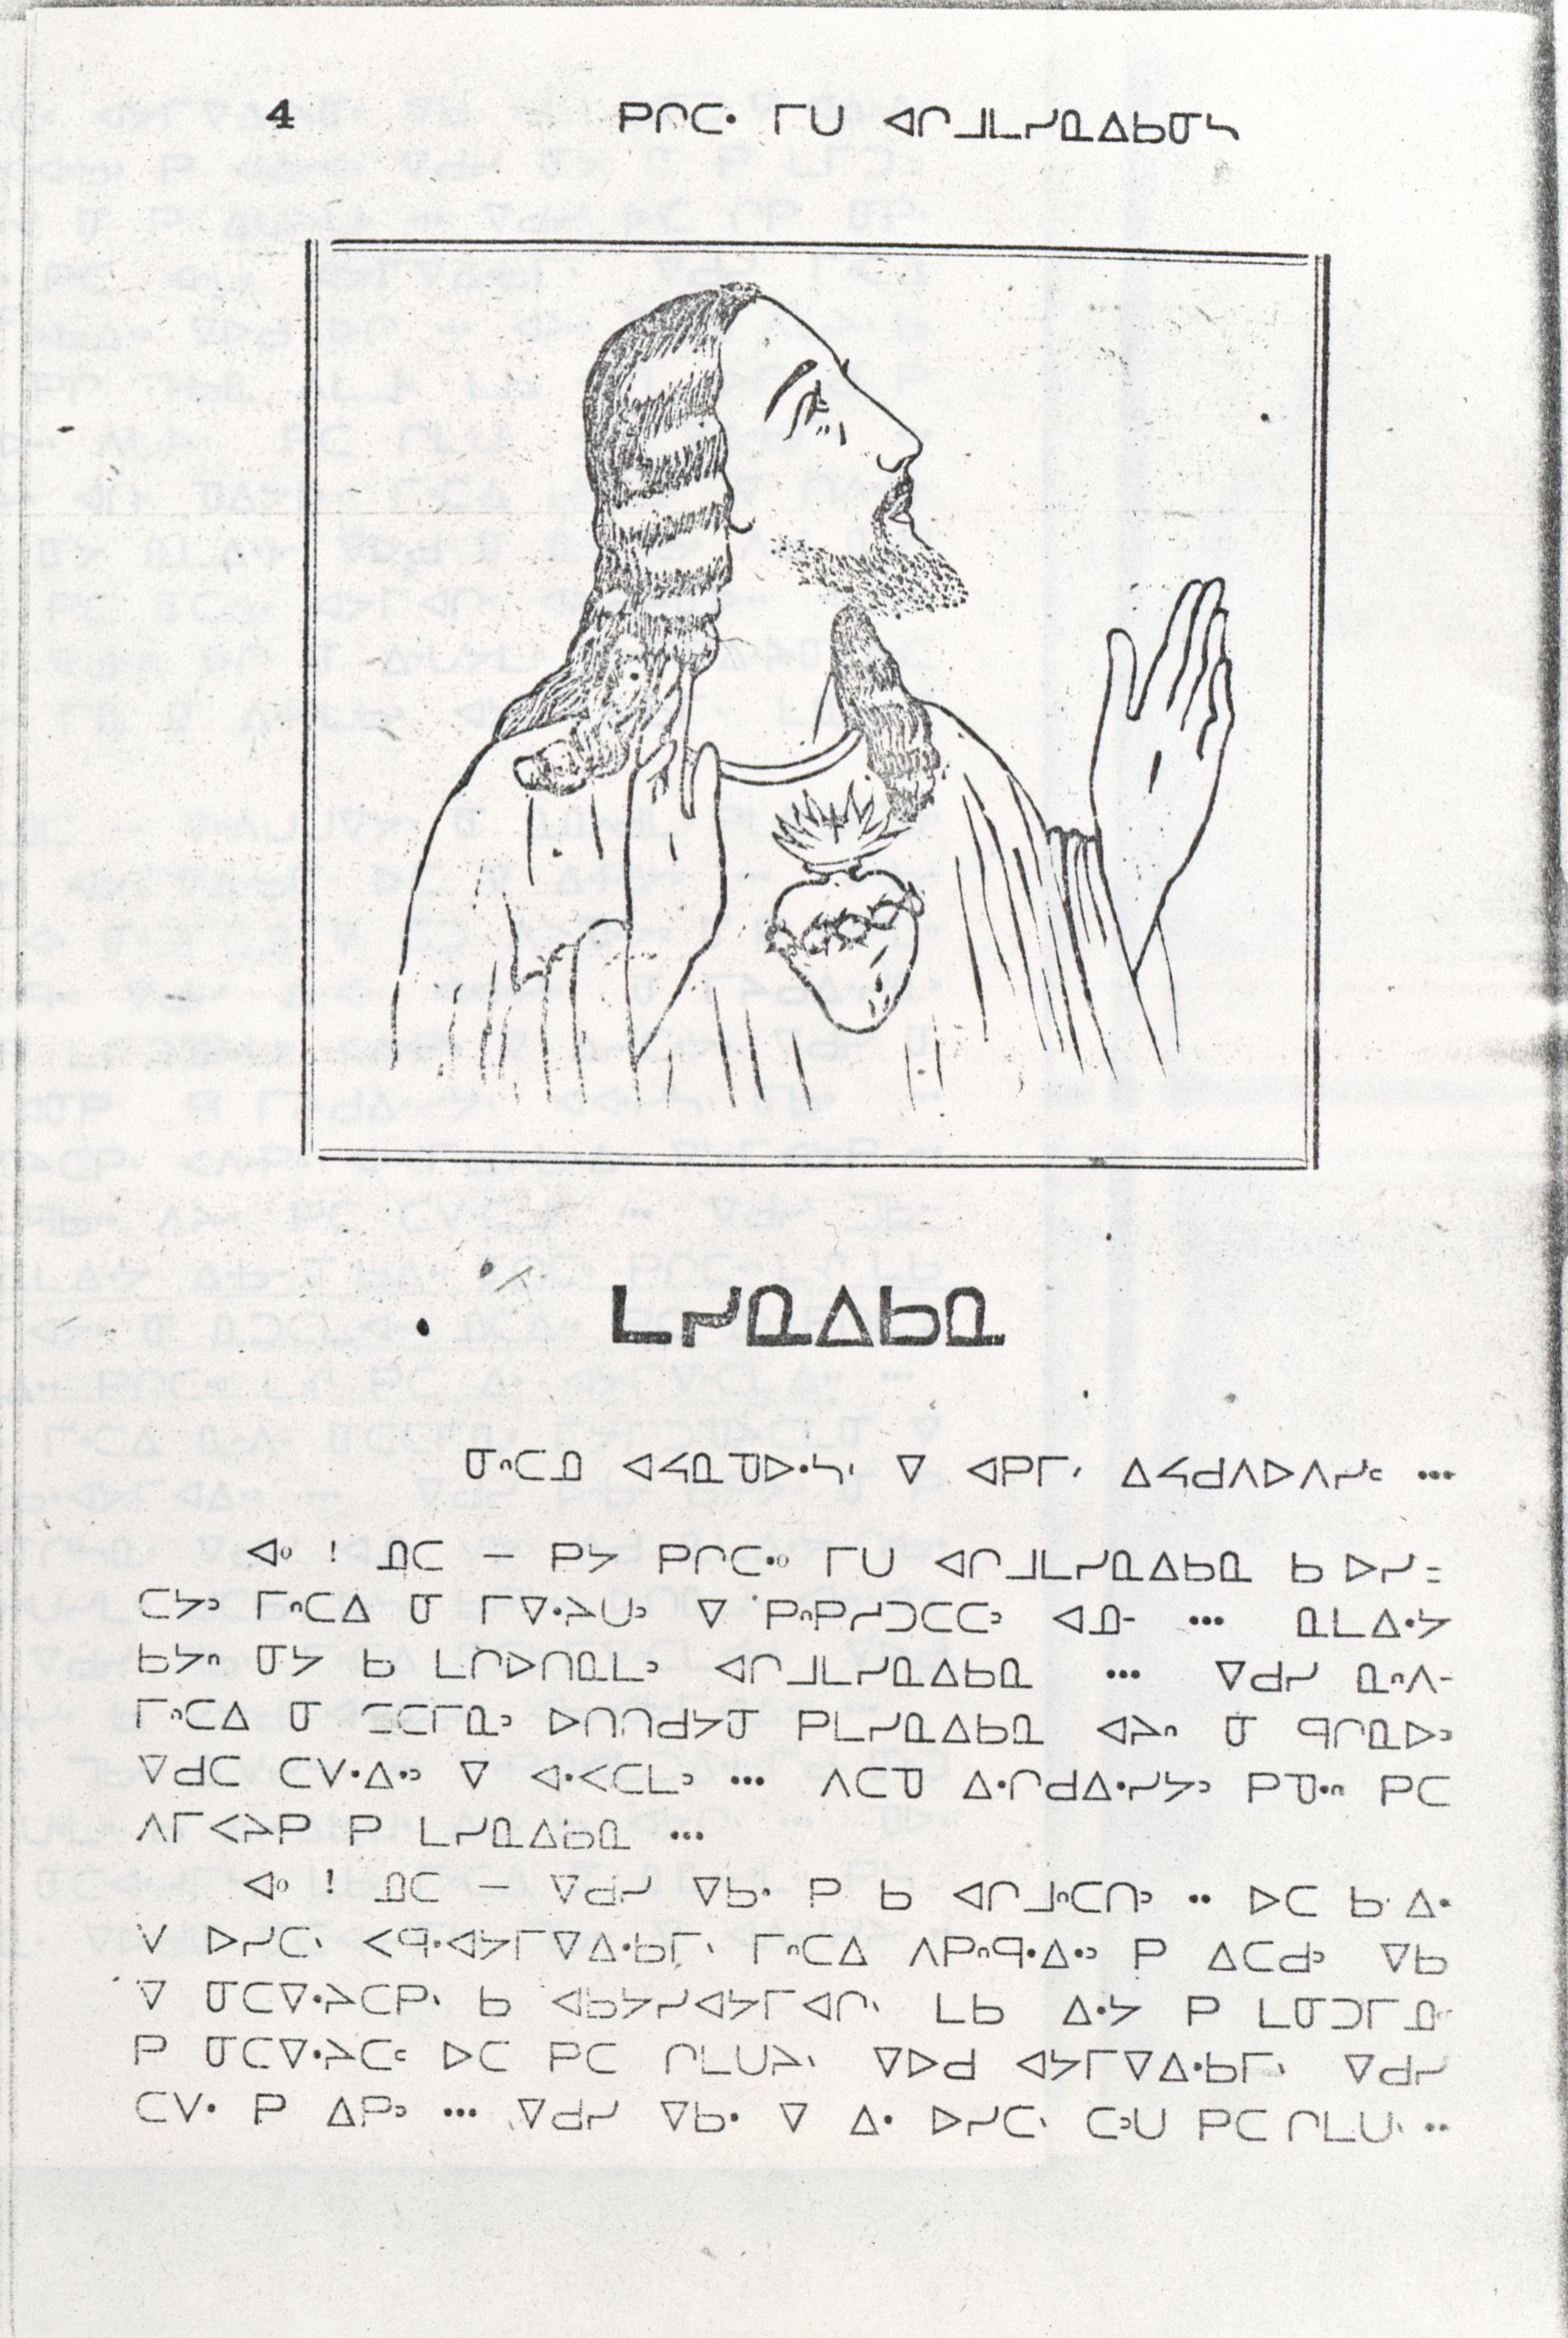 4 ᑭᒋᑕᐧ ᒥᑌ ᐊᒋᒧᒪᓯᓇᐃᑲᓂᓴ
ᒪᓯᓇᐃᑲᓇ
ᓂᐢᑕᓄ ᐊᔭᓇᓀᐅᐧᓴᐠ ᐁ ᐊᑭᒥᐟ ᐃᔭᑯᐱᐅᐱᓯᑦ •••
ᐊᐤ ! ᓄᑕ — ᑭᔭ ᑭᒋᑕᐧᐤ ᒥᑌ ᐊᒋᒧᒪᓯᓇᐃᑲᓇ ᑲ ᐅᓯ=
ᑕᔭᐣ ᒥᐢᑕᐃ ᓂ ᒥᐁᐧᔨᑌᐣ ᐁ ᑭᐢᑭᓯᑐᑕᑕᐣ ᐊᓄᐨ ••• ᓇᒪᐃᐧᔭ
ᑲᔭᐢ ᓂᔭ ᑲ ᒪᒋᐅᑎᓇᒪᐣ ᐊᒋᒧᒪᓯᓇᐃᑲᓇ ••• ᐁᑯᓯ ᓇᐢᐱᐨ
ᒥᐢᑕᐃ ᓂ ᑕᑕᒥᓇᐣ ᐅᑎᑎᑯᔭᓂ ᑭᒪᓯᓇᐃᑲᓇ ᐊᔨᐢ ᓂ ᑫᒋᓇᐅᐣ
ᐁᑯᑕ ᑕᐯᐧᐃᐧᐣ ᐁ ᐊᐧᐸᑕᒪᐣ ••• ᐱᑕᓀ ᐃᐧᒋᑯᐃᐧᓯᔭᐣ ᑭᓀᐧᐢ ᑭᑕ
ᐱᒥᐸᔨᑭ ᑭ ᒪᓯᓇᐃᑲᓇ •••
ᐊᐤ ! ᓄᑕ — ᐁᑯᓯ ᐁᑲᐧ ᑭ ᑲ ᐊᒋᒧᐢᑕᑎᐣ •• ᐅᑕ ᑲ ᐃᐧ
ᐯ ᐅᓯᑕᐠ ᐸᑫᐧᐊᔭᒥᐁᐃᐧᑲᒥᐠ ᒥᐢᑕᐃ ᐱᑭᐢᑫᐧᐃᐧᐣ ᑭ ᐃᑕᑯᐣ ᐁᑲ
ᐁ ᓂᑕᐁᐧᔨᑕᑭᐠ ᑲ ᐊᑲᔭᓯᐊᔭᒥᐊᒋᐠ ᒪᑲ ᐃᐧᔭ ᑭ ᒪᓂᑐᒥᓄᐤ
ᑭ ᓂᑕᐁᐧᔨᑕᑦ ᐅᑕ ᑭᑕ ᒋᒪᑌᔨᐠ ᐁᐅᑯ ᐊᔭᒥᐁᐃᐧᑲᒥᐠ ᐁᑯᓯ
ᑕᐯᐧ ᑭ ᐃᑭᐣ ••• ᐁᑯᓯ ᐁᑲᐧ ᐁ ᐃᐧ ᐅᓯᑕᐠ ᑕᐣᑌ ᑭᑕ ᒋᒪᑌᐠ ••